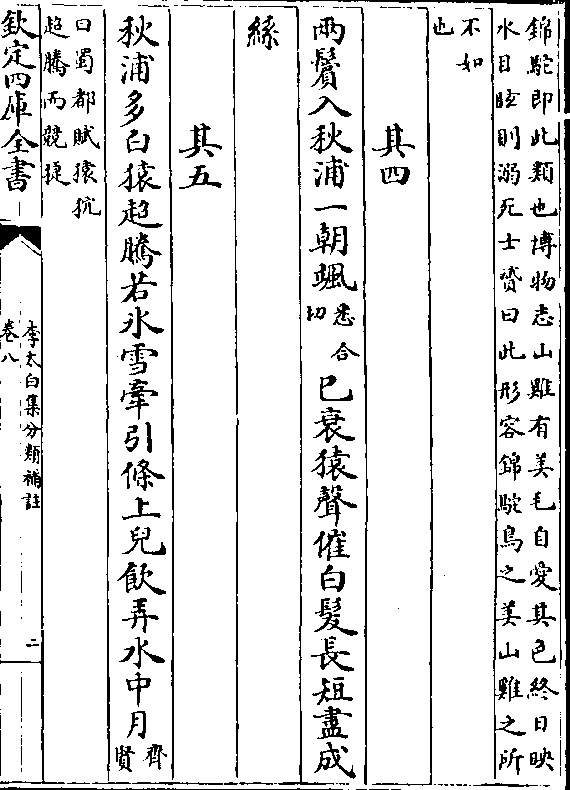 錦駝即此類也博物志山雞有美毛自愛其色終日映
水目眩則溺死士贇曰此形容錦駝鳥之美山雞之所
不如
也
其四
兩鬢入秋浦一朝颯悉合
切已衰猿聲催白髪長短盡成
絲
其五
秋浦多白猿超騰若氷雪牽引條上兒飲弄水中月齊
賢
曰蜀都賦猿狖
超騰而競捷
欽定四庫全書
李太白集分類補註
卷八
二